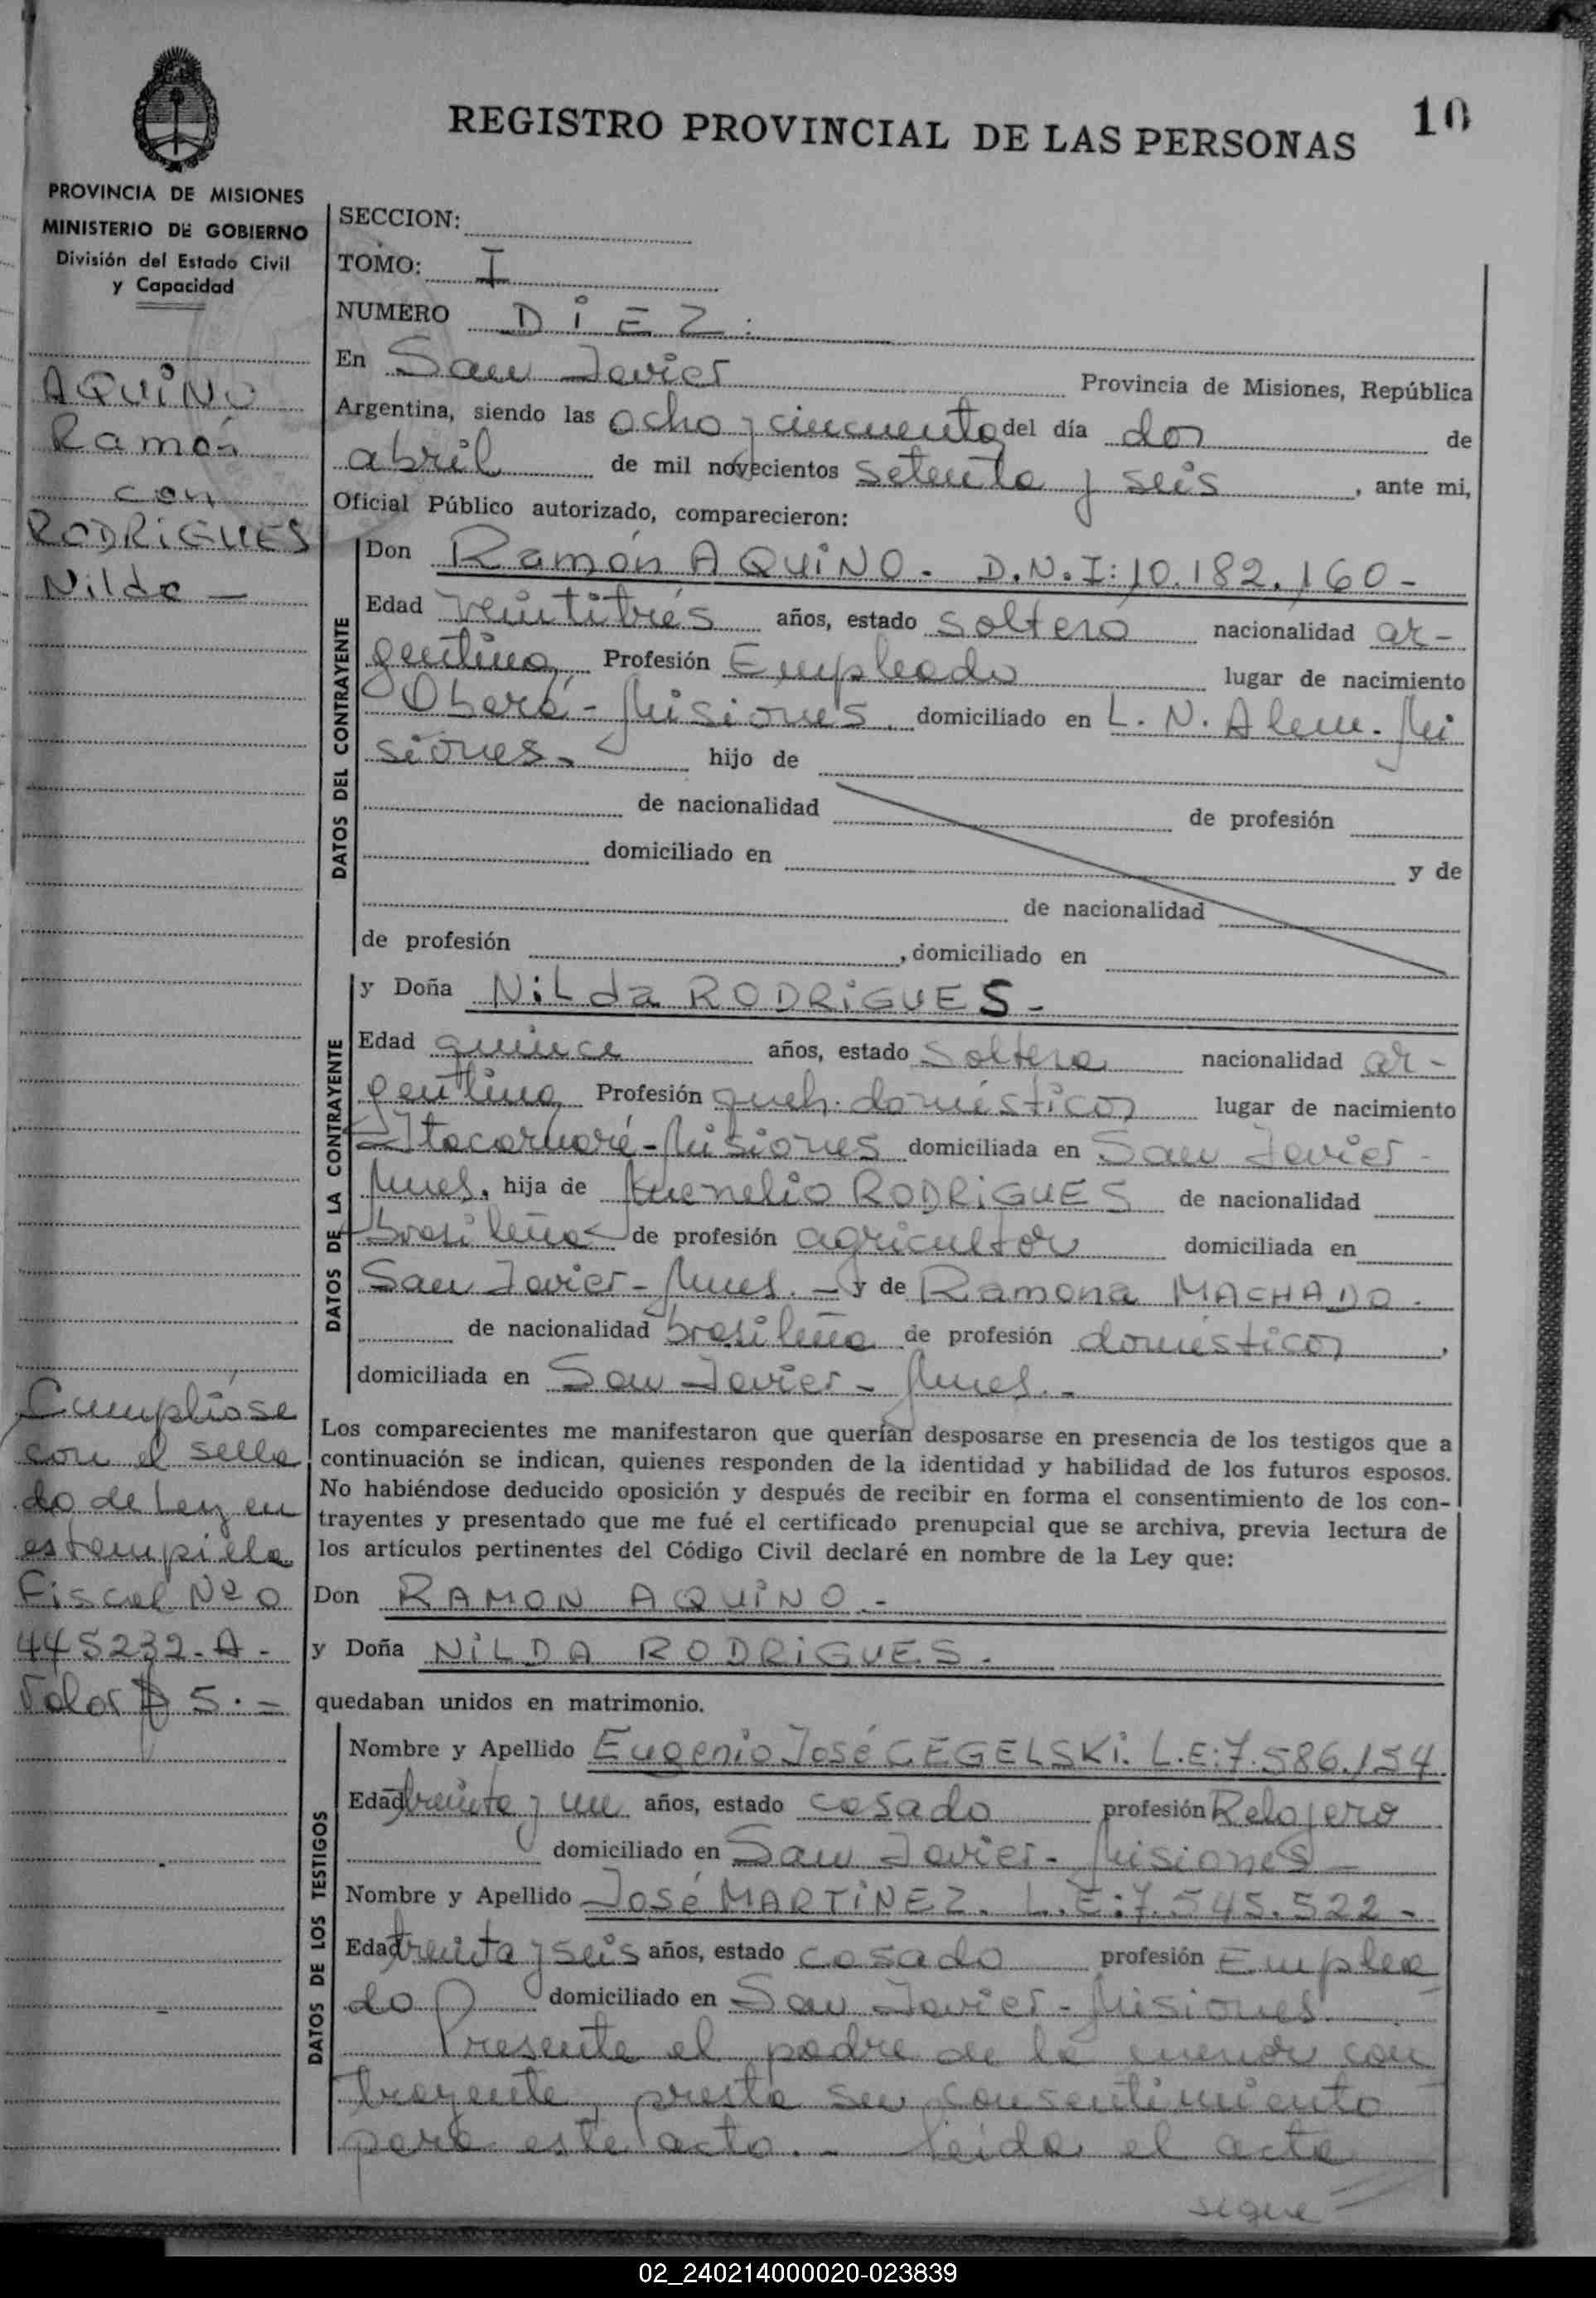 REGISTRO PROVINCIAL DE LAS PERSONAS
10
PROVINCIA DE MISIONES
MINISTERIO DE GOBIERNO
División del Estado Civil
y Capacidad
AQUINO
Ramón
con
RODRIGUES
Nilda -
Cumplióse
con el sella
do de Ley en
estampilla
Fiscal Nº 0
445232-A-
Valor $ 5.=
SECCION:
TOMO: I
NUMERO DIEZ.
En San Javier Provincia de Misiones, República
Argentina, siendo las ocho y cincuenta del día dos de
abril de mil novecientos setenta y seis, ante mi,
Oficial Público autorizado, comparecieron:
DATOS DEL CONTRAYENTE
Don Ramón AQUINO. D.N.I: 10.182.160-
Edad veintitrés años, estado soltero nacionalidad ar-
gentina Profesión Empleado lugar de nacimiento
Oberá-Misiones. domiciliado en L. N. Alem. Mi
siones. hijo de
de nacionalidad de profesión
domiciliado en y de
de nacionalidad
de profesión , domiciliado en
DATOS DE LA CONTRAYENTE
y Doña Nilda RODRIGUES-
Edad quince años, estado soltera nacionalidad ar-
gentina Profesión queh. domésticos lugar de nacimiento
Itacaruaré-Misiones domiciliada en San Javier-
Mnes. hija de RODRIGUES de nacionalidad
brasileña de profesión agricultor domiciliada en
San Javier-Mnes.- y de Ramona MACHADO.
de nacionalidad brasileña de profesión domésticos,
domiciliada en San Javier- Mnes.-
Los comparecientes me manifestaron que querían desposarse en presencia de los testigos que a
continuación se indican, quienes responden de la identidad y habilidad de los futuros esposos.
No habiéndose deducido oposición y después de recibir en forma el consentimiento de los con-
trayentes y presentado que me fué el certificado prenupcial que se archiva, previa lectura de
los artículos pertinentes del Código Civil declaré en nombre de la Ley que:
Don RAMON AQUINO.-
y Doña NILDA RODRIGUES.
quedaban unidos en matrimonio.
DATOS DE LOS TESTIGOS
Nombre y Apellido Eugenio José CEGELSKI. L.E: 7.586.154
Edad treinta y un años, estado casado profesión Relojero
domiciliado en San Javier- Misiones-
Nombre y Apellido José MARTINEZ. L.E: 7.545.522-
Edad treinta y seis años, estado casado profesión Emplea
do domiciliado en San Javier-Misiones.
Presente el padre de la menor con
trayente, presta su consentimiento
para este acto.- Leída el acta
sigue =
02_240214000020-023839